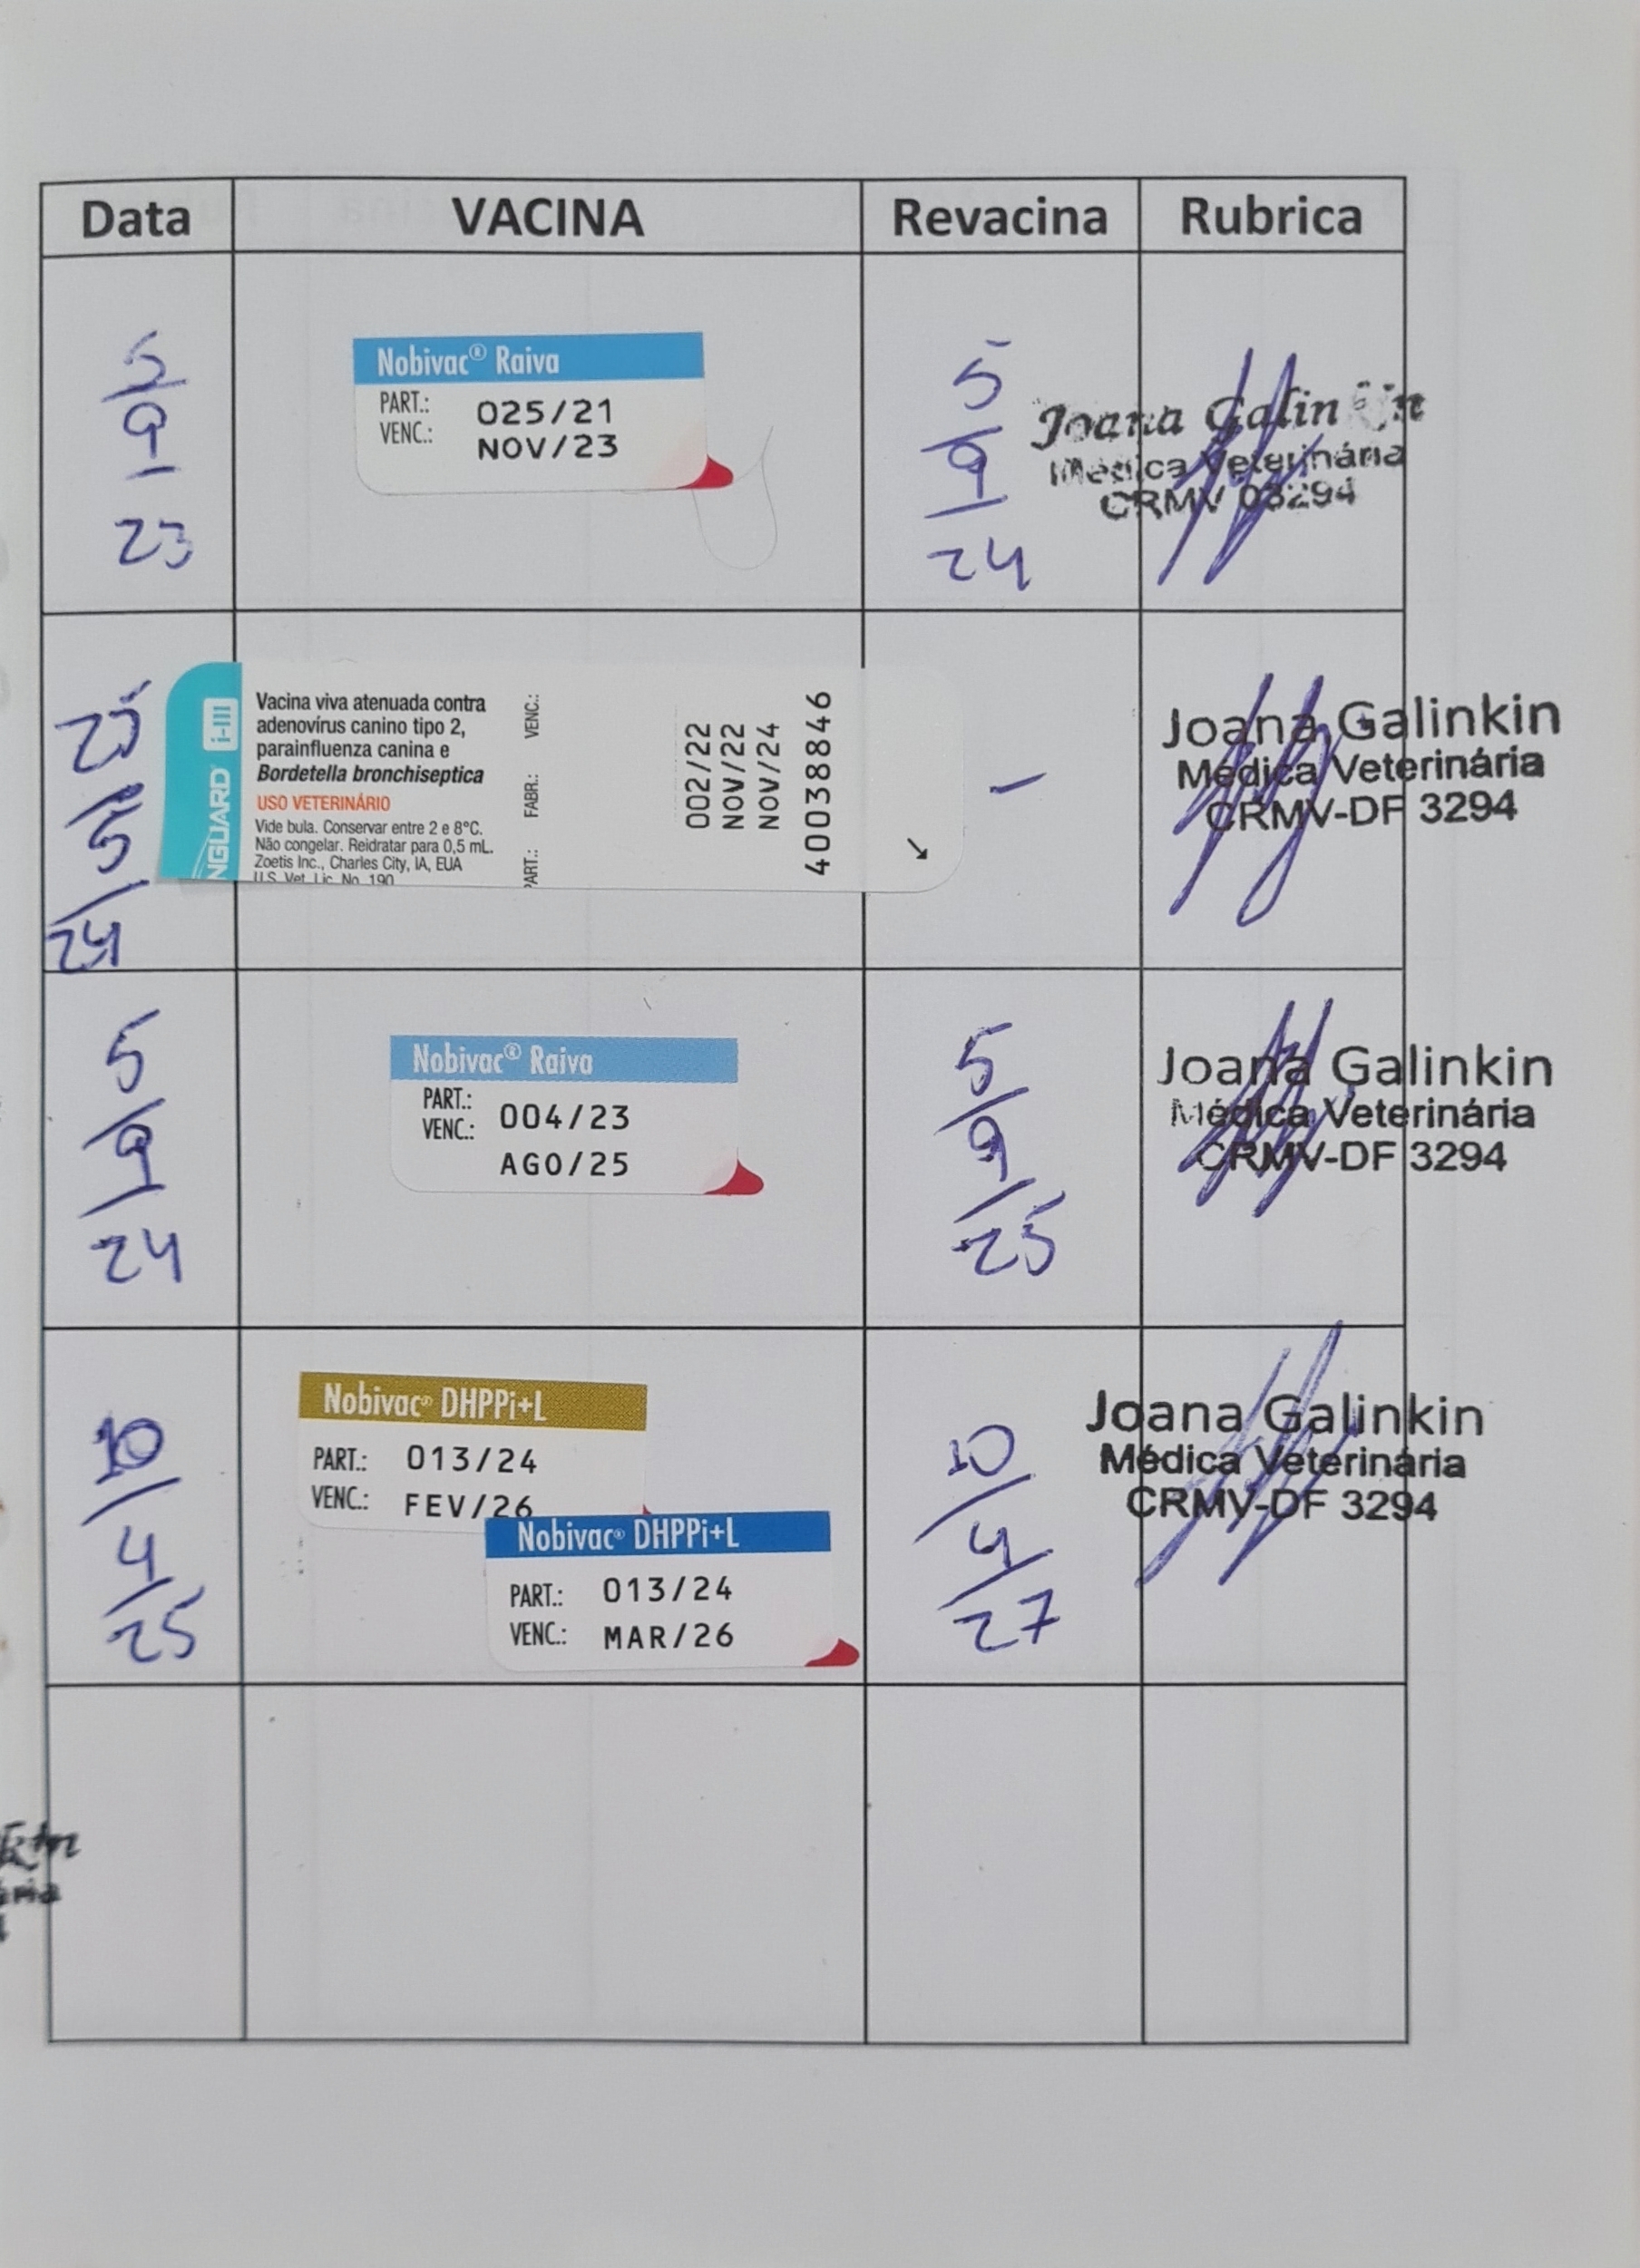 Data VACINA Revacina Rubrica
5/9/23
Nobivac® Raiva
PART.: 025/21
VENC.: NOV/23
5/9/24
Joana Galinkin
Médica Veterinária
CRMV 03294
23/5/24
NGUARD i-III
Vacina viva atenuada contra
adenovírus canino tipo 2,
parainfluenza canina e
Bordetella bronchiseptica
USO VETERINÁRIO
Vide bula. Conservar entre 2 e 8°C.
Não congelar. Reidratar para 0,5 mL.
Zoetis Inc., Charles City, IA, EUA
U.S. Vet. Lic. No. 190
PART.: FABR.: VENC.:
002/22
NOV/22
NOV/24
40038846
-
Joana Galinkin
Médica Veterinária
CRMV-DF 3294
5/9/24
Nobivac® Raiva
PART.: 004/23
VENC.: AGO/25
5/9/25
Joana Galinkin
Médica Veterinária
CRMV-DF 3294
10/4/25
Nobivac® DHPPi+L
PART.: 013/24
VENC.: FEV/26
Nobivac® DHPPi+L
PART.: 013/24
VENC.: MAR/26
10/4/27
Joana Galinkin
Médica Veterinária
CRMV-DF 3294